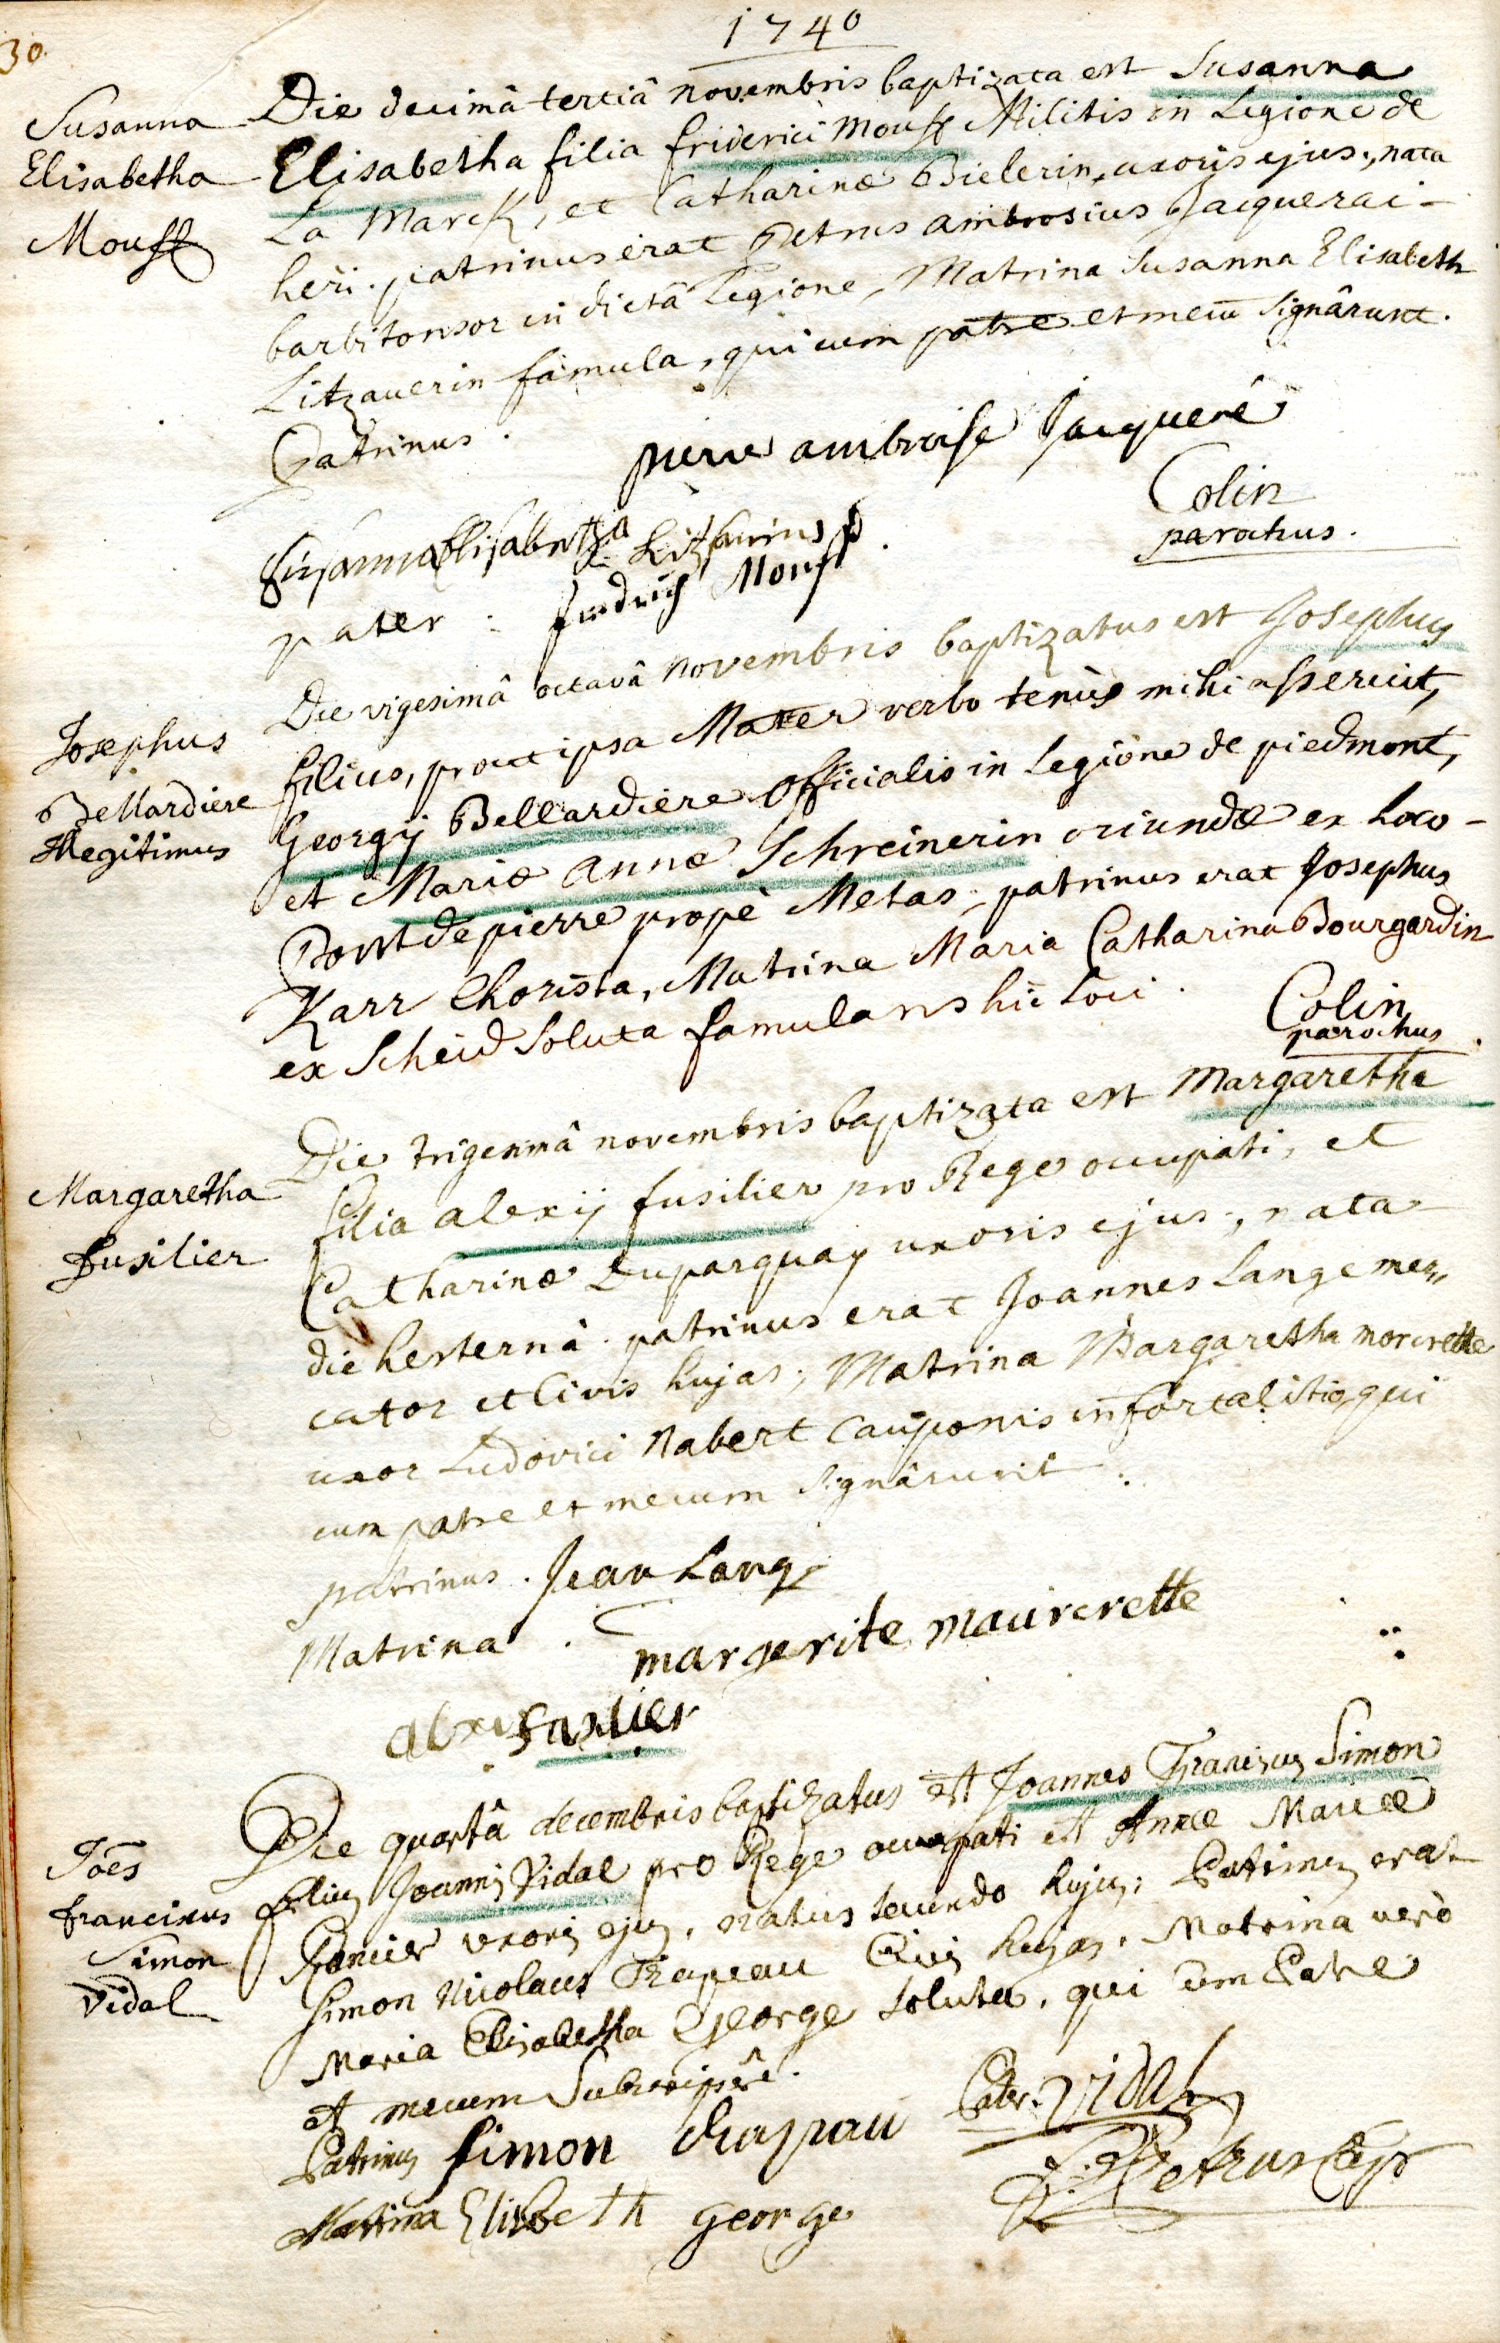 1740
30.
Susanna
Elisabetha
Mousß
Die decimâ tertiâ novembris baptizata est Susanna
Elisabetha filia friderici Mousß Militis in Legione de
La Marck, et Catharinæ Bielerin, uxoris ejus, nata
heri. patrinus erat Petrus ambrosius Jacquerai-
barbitonsor in dictâ Legione, Matrina Susanna Elisabeth
Litzauerin famula, qui cum patre et mecū signârunt.
Patrinus. pierre ambroise Jacqueré
Colin
parochus.
Susanna Elisabetha
pater: fridrich Mousß
Josephus
Bellardiere
Illegitimus
Die vigesimâ octavâ novembris baptizatus est Josephus
filius, prout ipsa Mater verbo tenùs mihi asseruit,
Georgij Bellardiere officialis in Legione de piedmont,
et Mariæ annæ Schreinerin oriundæ ex Loco-
Pont de pierre propè Metas; patrinus erat Josephus
Karr Chorista, Matrina Maria Catharina Bourgardin
ex Scheid soluta famulans hîc loci.
Colin
parochus.
Margaretha
fusilier
Die trigesimâ novembris baptizata est Margaretha
filia alexij fusilier pro Rege occupati, et
Catharinæ Duparquay uxoris ejus, nata
die hesternâ. patrinus erat Joannes Lange mer„
cator et Civis hujas; Matrina Margaretha morcrette
uxor Ludovici Nabert Cauponis in fortalitio, qui
cum patre et mecum signârunt.
patrinus. Jean Lang
Matrina. margerite maurcrette
alexi fusilier
Joēs
francixus
Simon
Vidal
Die quartâ decembris baptizatus est Joannes Francixus Simon
filius Joannis Vidal pro Rege occupati et Annæ Mariæ
uxoris ejus, natus secundo hujus; Patrinus erat
Simon Nicolaus Trapeau Civis hujas. Matrina verò
Maria Elisabetha George soluta, qui cum Patre
et mecum Subscripsêre.
Pater. Vidal
Patrinus simon
Matrina Elisbeth george